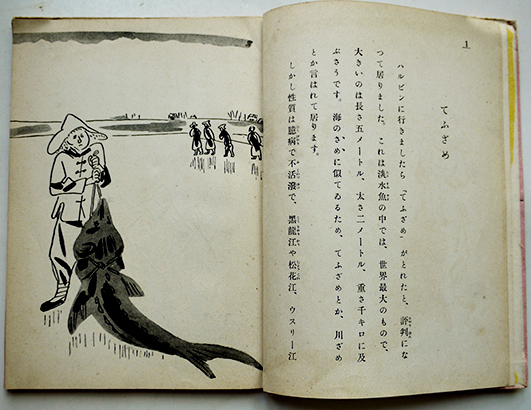 1
てふざめ
ハルビンに行きましたら「てふざめ」がとれたと、評判にな
つて居りました。これは淡水魚の中では、世界最大のもので、
大きいのは長さ五メートル、太さ二メートル、重さ千キロに及
ぶさうです。海のさめに似てゐるため、てふざめとか、川ざめ
とか言はれて居ります。
しかし性質は臆病で不活潑で、黑龍江や松花江、ウスリー江